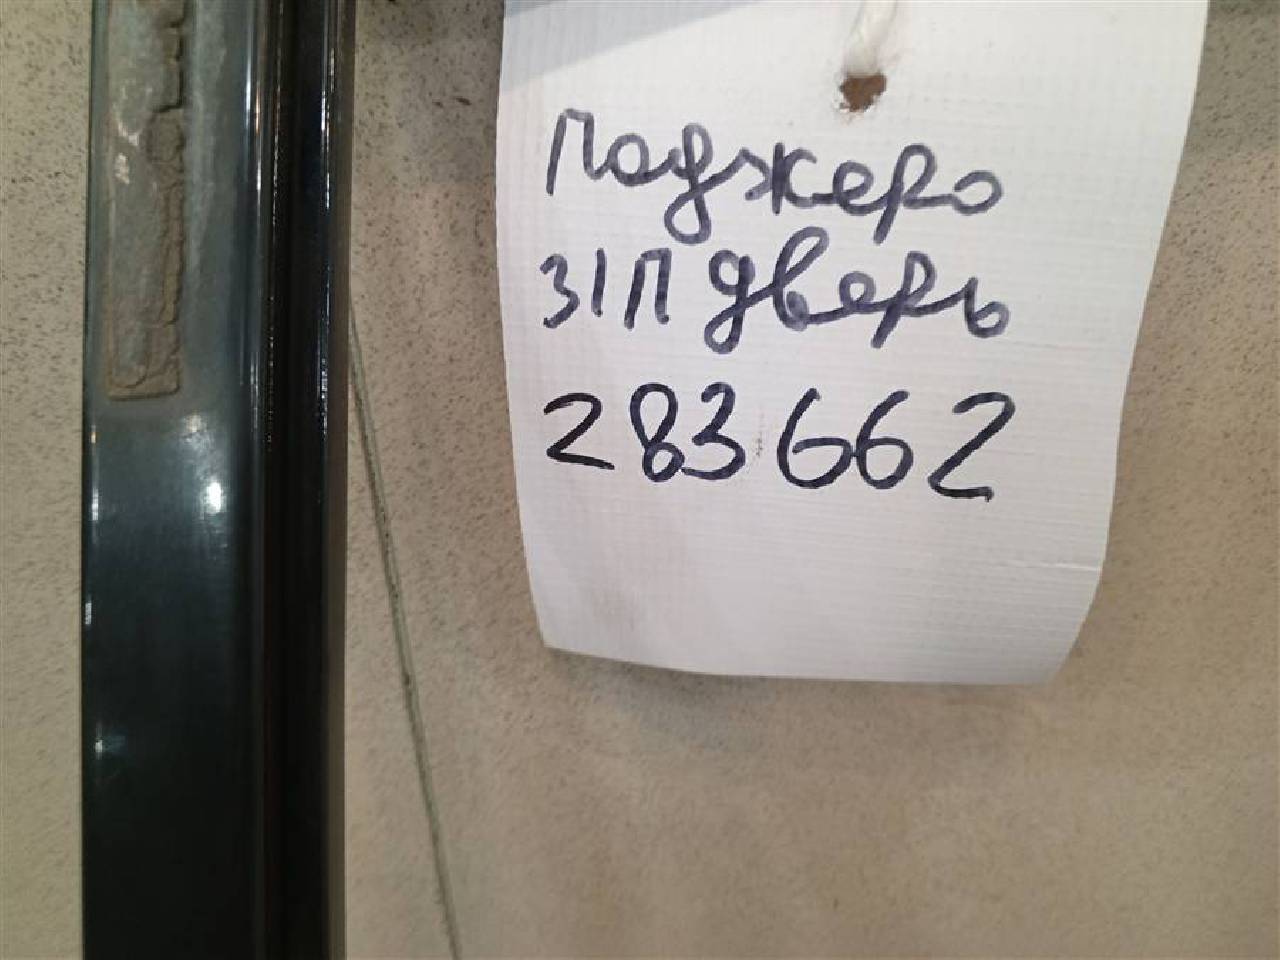 Паджеро
з/п дверь
283662